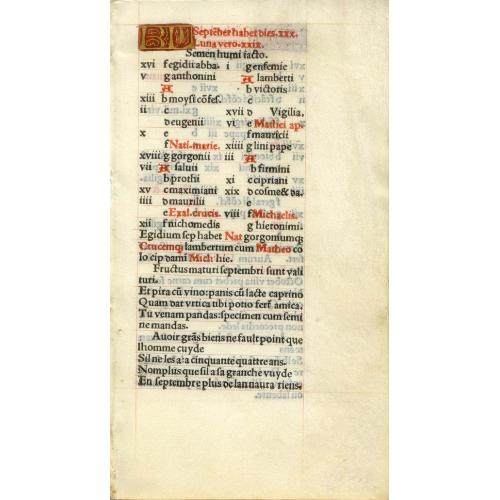 KL Septēber habet dies. xxx.
Luna vero. xxix.
Semen humi iacto.
xvi f egidii abba. i g enfemie
v g anthonini A lamberti
A b victoris
xiii b moysi cōfes.
ii c xvii d Vigilia.
d eugenii vi e Mathei ap.
x e f mauricii
f Nati. marie. xiiii g lini pape
xviii g gorgonii iii A
vii A saluii b firmini
b prothii xi c cipriani
xv c maximiani xix d cosme & da.
iiii d maurilii e
e Exal. crucis. viii f Michaelis.
xii f nichomedis g hieronimi.
Egidium sep habet Nat gorgonsumq;
Crucemq; lambertum cum Matheo co
lo cip dami Mich hie.
Fructus maturi septembri sunt vali
turi.
Et pira cū vino: panis cū lacte caprino
Quam dat vrtica tibi potio fert amica.
Tu venam pandas: specimen cum semi
ne mandas.
Auoir grās biens ne fault point que
lhomme cuyde
Sil ne les a: a cinquante quattre ans.
Nomplus que sil a sa granche vuyde
En septembre plus de lan naura riens.